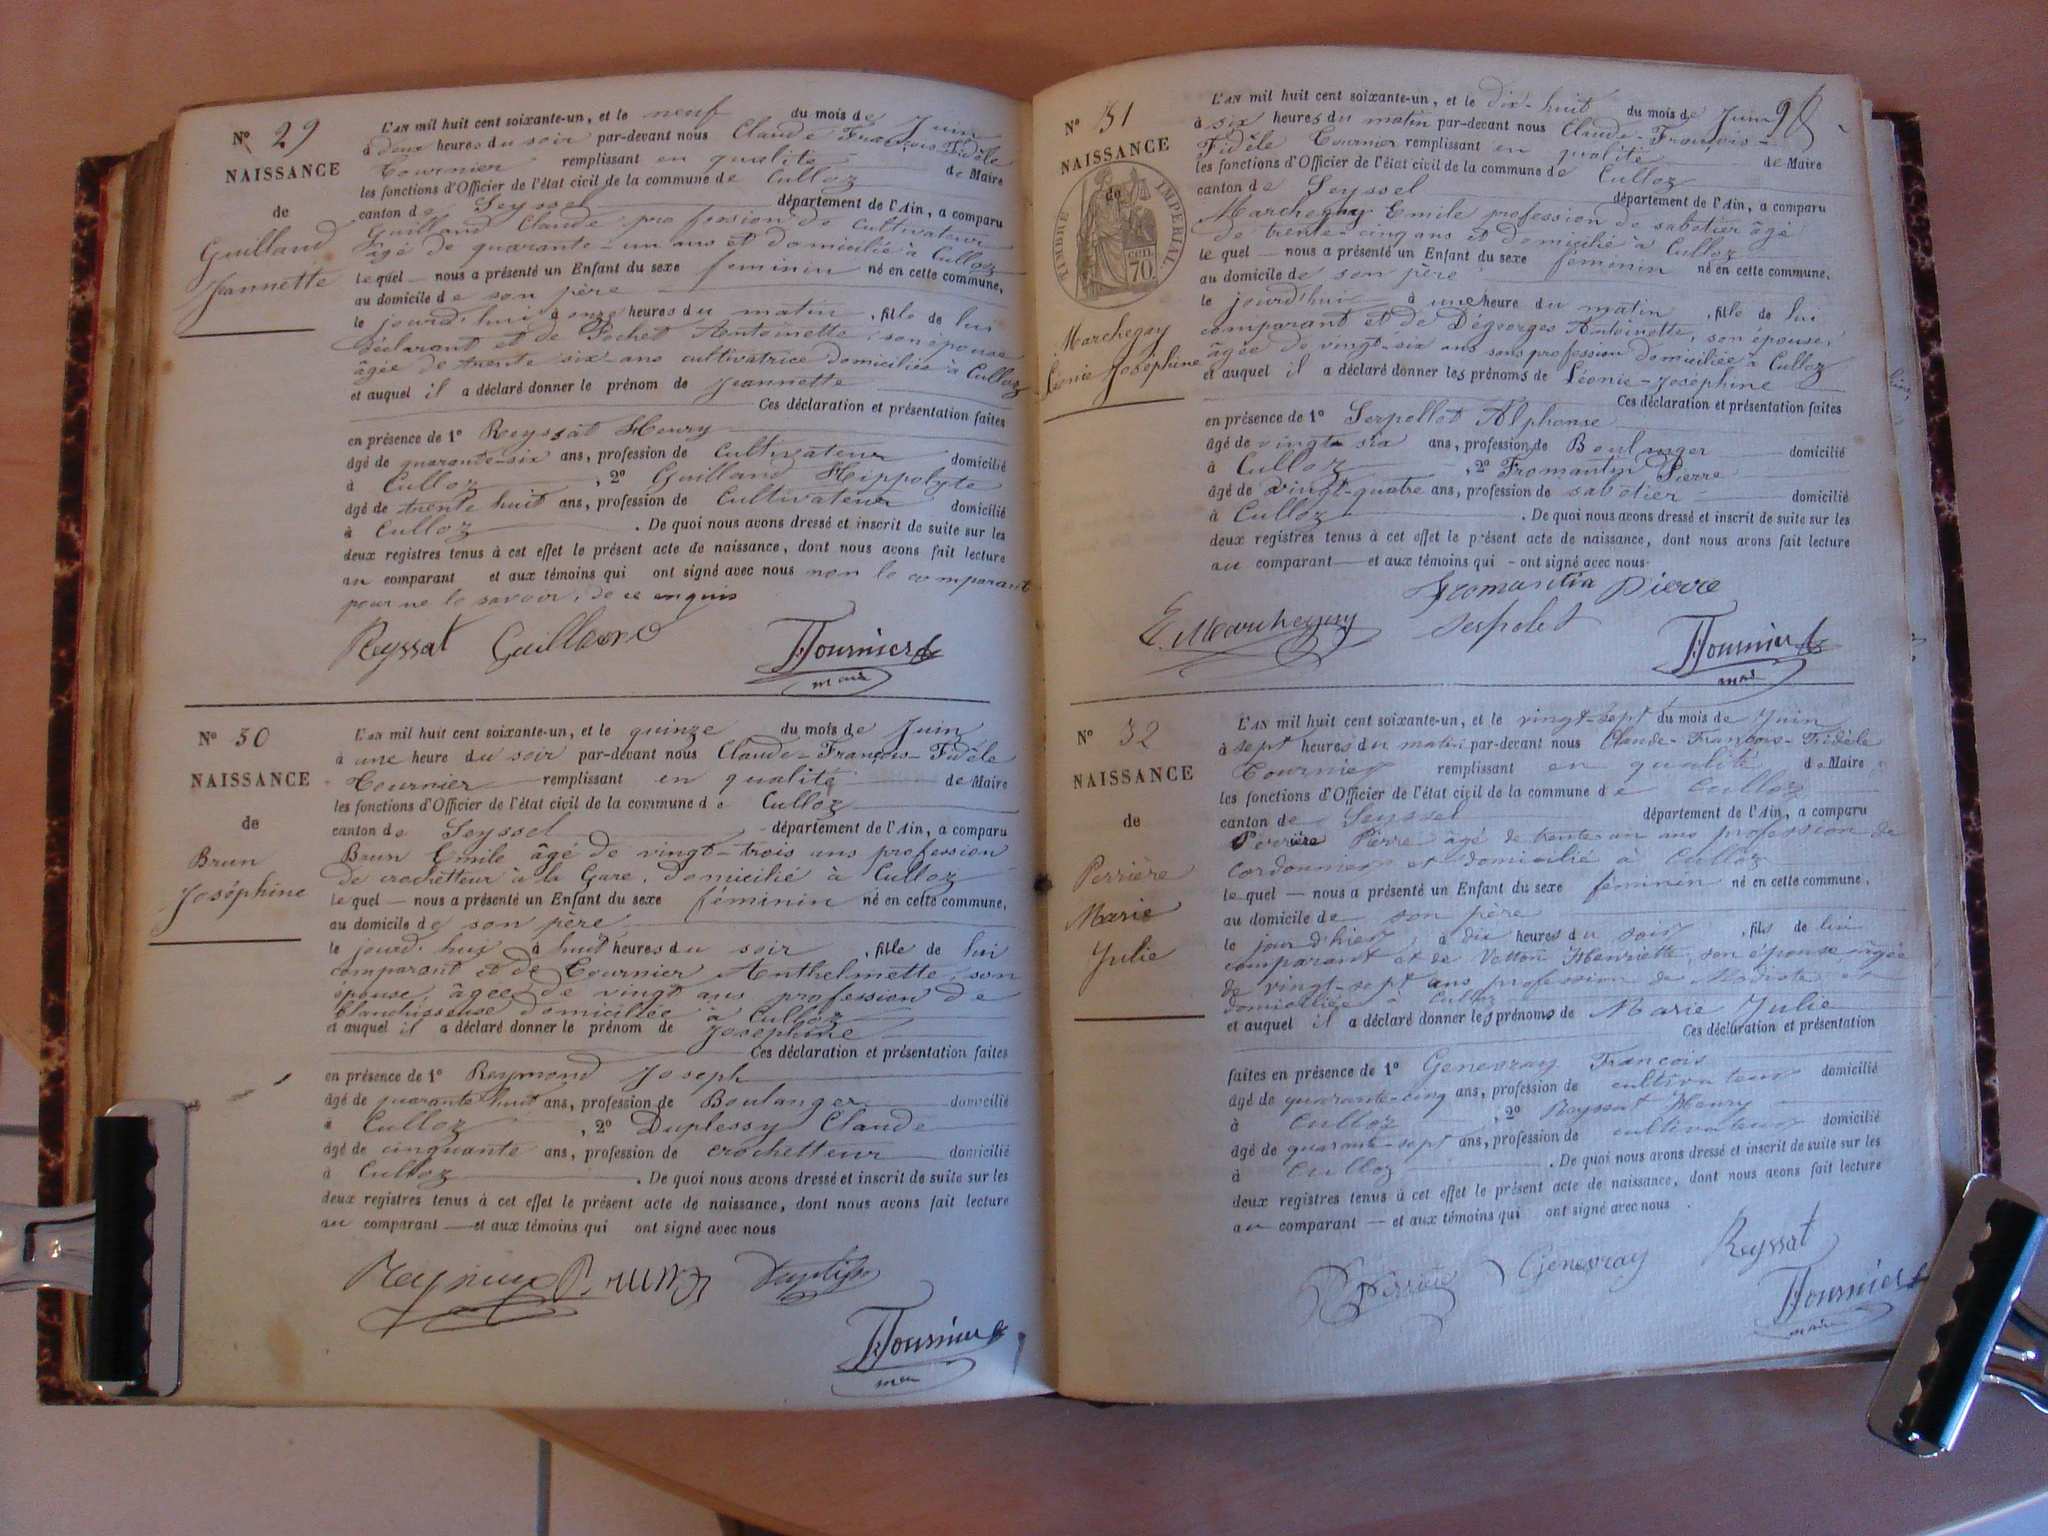 Nº 29
NAISSANCE
de
Guilland
Jeannette
L'AN mil huit cent soixante-un, et le neuf du mois de Juin
à deux heures du soir par-devant nous Claude François-Fidèle
Tournier remplissant en qualité de Maire
les fonctions d'Officier de l'état civil de la commune de Culloz
canton de Seyssel département de l'Ain, a comparu
Guilland Claude profession de Cultivateur
âgé de quarante-un ans et domicilié à Culloz
lequel nous a présenté un Enfant du sexe féminin né en cette commune,
au domicile de son père
le jourd'hui à onze heures du matin, fille de lui
déclarant et de Pochet Antoinette, son épouse
âgée de trente six ans cultivatrice domiciliée à Culloz
et auquel il a déclaré donner le prénom de Jeannette
Ces déclaration et présentation faites
en présence de 1º Reyssat Henry
âgé de quarante-six ans, profession de Cultivateur domicilié
à Culloz, 2º Guilland Hippolyte
âgé de trente huit ans, profession de Cultivateur domicilié
à Culloz. De quoi nous avons dressé et inscrit de suite sur les
deux registres tenus à cet effet le présent acte de naissance, dont nous avons fait lecture
au comparant et aux témoins qui ont signé avec nous non le comparant
pour ne le savoir, de ce enquis
Reyssat Guilland FTournier
maire
Nº 30
NAISSANCE
de
Brun
Joséphine
L'AN mil huit cent soixante-un, et le quinze du mois de Juin
à une heure du soir par-devant nous Claude-François-Fidèle
Tournier remplissant en qualité de Maire
les fonctions d'Officier de l'état civil de la commune de Culloz
canton de Seyssel département de l'Ain, a comparu
Brun Emile âgé de vingt-trois ans profession
de crochetteur à la Gare, domicilié à Culloz
lequel nous a présenté un Enfant du sexe féminin né en cette commune,
au domicile de son père
le jourd'hui à huit heures du soir, fille de lui
comparant et de Tournier Anthelmette, son
épouse, âgée de vingt ans profession de
blanchisseuse domiciliée à Culloz
et auquel il a déclaré donner le prénom de Joséphine
Ces déclaration et présentation faites
en présence de 1º Reymond Joseph
âgé de quarante huit ans, profession de Boulanger domicilié
à Culloz, 2º Duplessy Claude
âgé de cinquante ans, profession de crochetteur domicilié
à Culloz. De quoi nous avons dressé et inscrit de suite sur les
deux registres tenus à cet effet le présent acte de naissance, dont nous avons fait lecture
au comparant et aux témoins qui ont signé avec nous
FTournier
Nº 31
NAISSANCE
de
TIMBRE IMPERIAL
70
Marchegay
Léonie Joséphine
L'AN mil huit cent soixante-un, et le dix-huit du mois de Juin
à six heures du matin par-devant nous Claude-François-
Fidèle Tournier remplissant en qualité de Maire
les fonctions d'Officier de l'état civil de la commune de Culloz
canton de Seyssel département de l'Ain, a comparu
Marchegay Emile profession de sabotier âgé
de trente-cinq ans et domicilié à Culloz
lequel nous a présenté un Enfant du sexe féminin né en cette commune,
au domicile de son père
le jourd'hui à une heure du matin, fille de lui
comparant et de Dégeorges Antoinette, son épouse,
âgée de vingt-six ans sans profession domiciliée à Culloz
et auquel il a déclaré donner les prénoms de Léonie-Joséphine
Ces déclaration et présentation faites
en présence de 1º Serpollet Alphonse
âgé de vingt six ans, profession de Boulanger domicilié
à Culloz, 2º Fromantin Pierre
âgé de vingt-quatre ans, profession de sabotier domicilié
à Culloz. De quoi nous avons dressé et inscrit de suite sur les
deux registres tenus à cet effet le présent acte de naissance, dont nous avons fait lecture
au comparant et aux témoins qui ont signé avec nous
Fromantin Pierre
E. Marchegay Serpolet FTournier
Nº 32
NAISSANCE
de
Perrière
Marie
Julie
L'AN mil huit cent soixante-un, et le vingt-sept du mois de Juin
à sept heures du matin par-devant nous Claude-François-Fidèle
Tournier remplissant en qualité de Maire
les fonctions d'Officier de l'état civil de la commune de Culloz
canton de Seyssel département de l'Ain, a comparu
Perrière Pierre âgé de trente-un ans profession de
cordonnier et domicilié à Culloz
lequel nous a présenté un Enfant du sexe féminin né en cette commune,
au domicile de son père
le jour d'hier, à dix heures du soir, fils de lui
comparant et de Vetton Henriette, son épouse, âgée
de vingt-sept ans profession de Modiste et
domiciliée à Culloz
et auquel il a déclaré donner les prénoms de Marie Julie
Ces déclaration et présentation
faites en présence de 1º Genevray François
âgé de quarante-cinq ans, profession de cultivateur domicilié
à Culloz, 2º Reyssat Henry
âgé de quarante-sept ans, profession de cultivateur domicilié
à Culloz. De quoi nous avons dressé et inscrit de suite sur les
deux registres tenus à cet effet le présent acte de naissance, dont nous avons fait lecture
au comparant et aux témoins qui ont signé avec nous
Perrière Genevray Reyssat
FTournier
maire